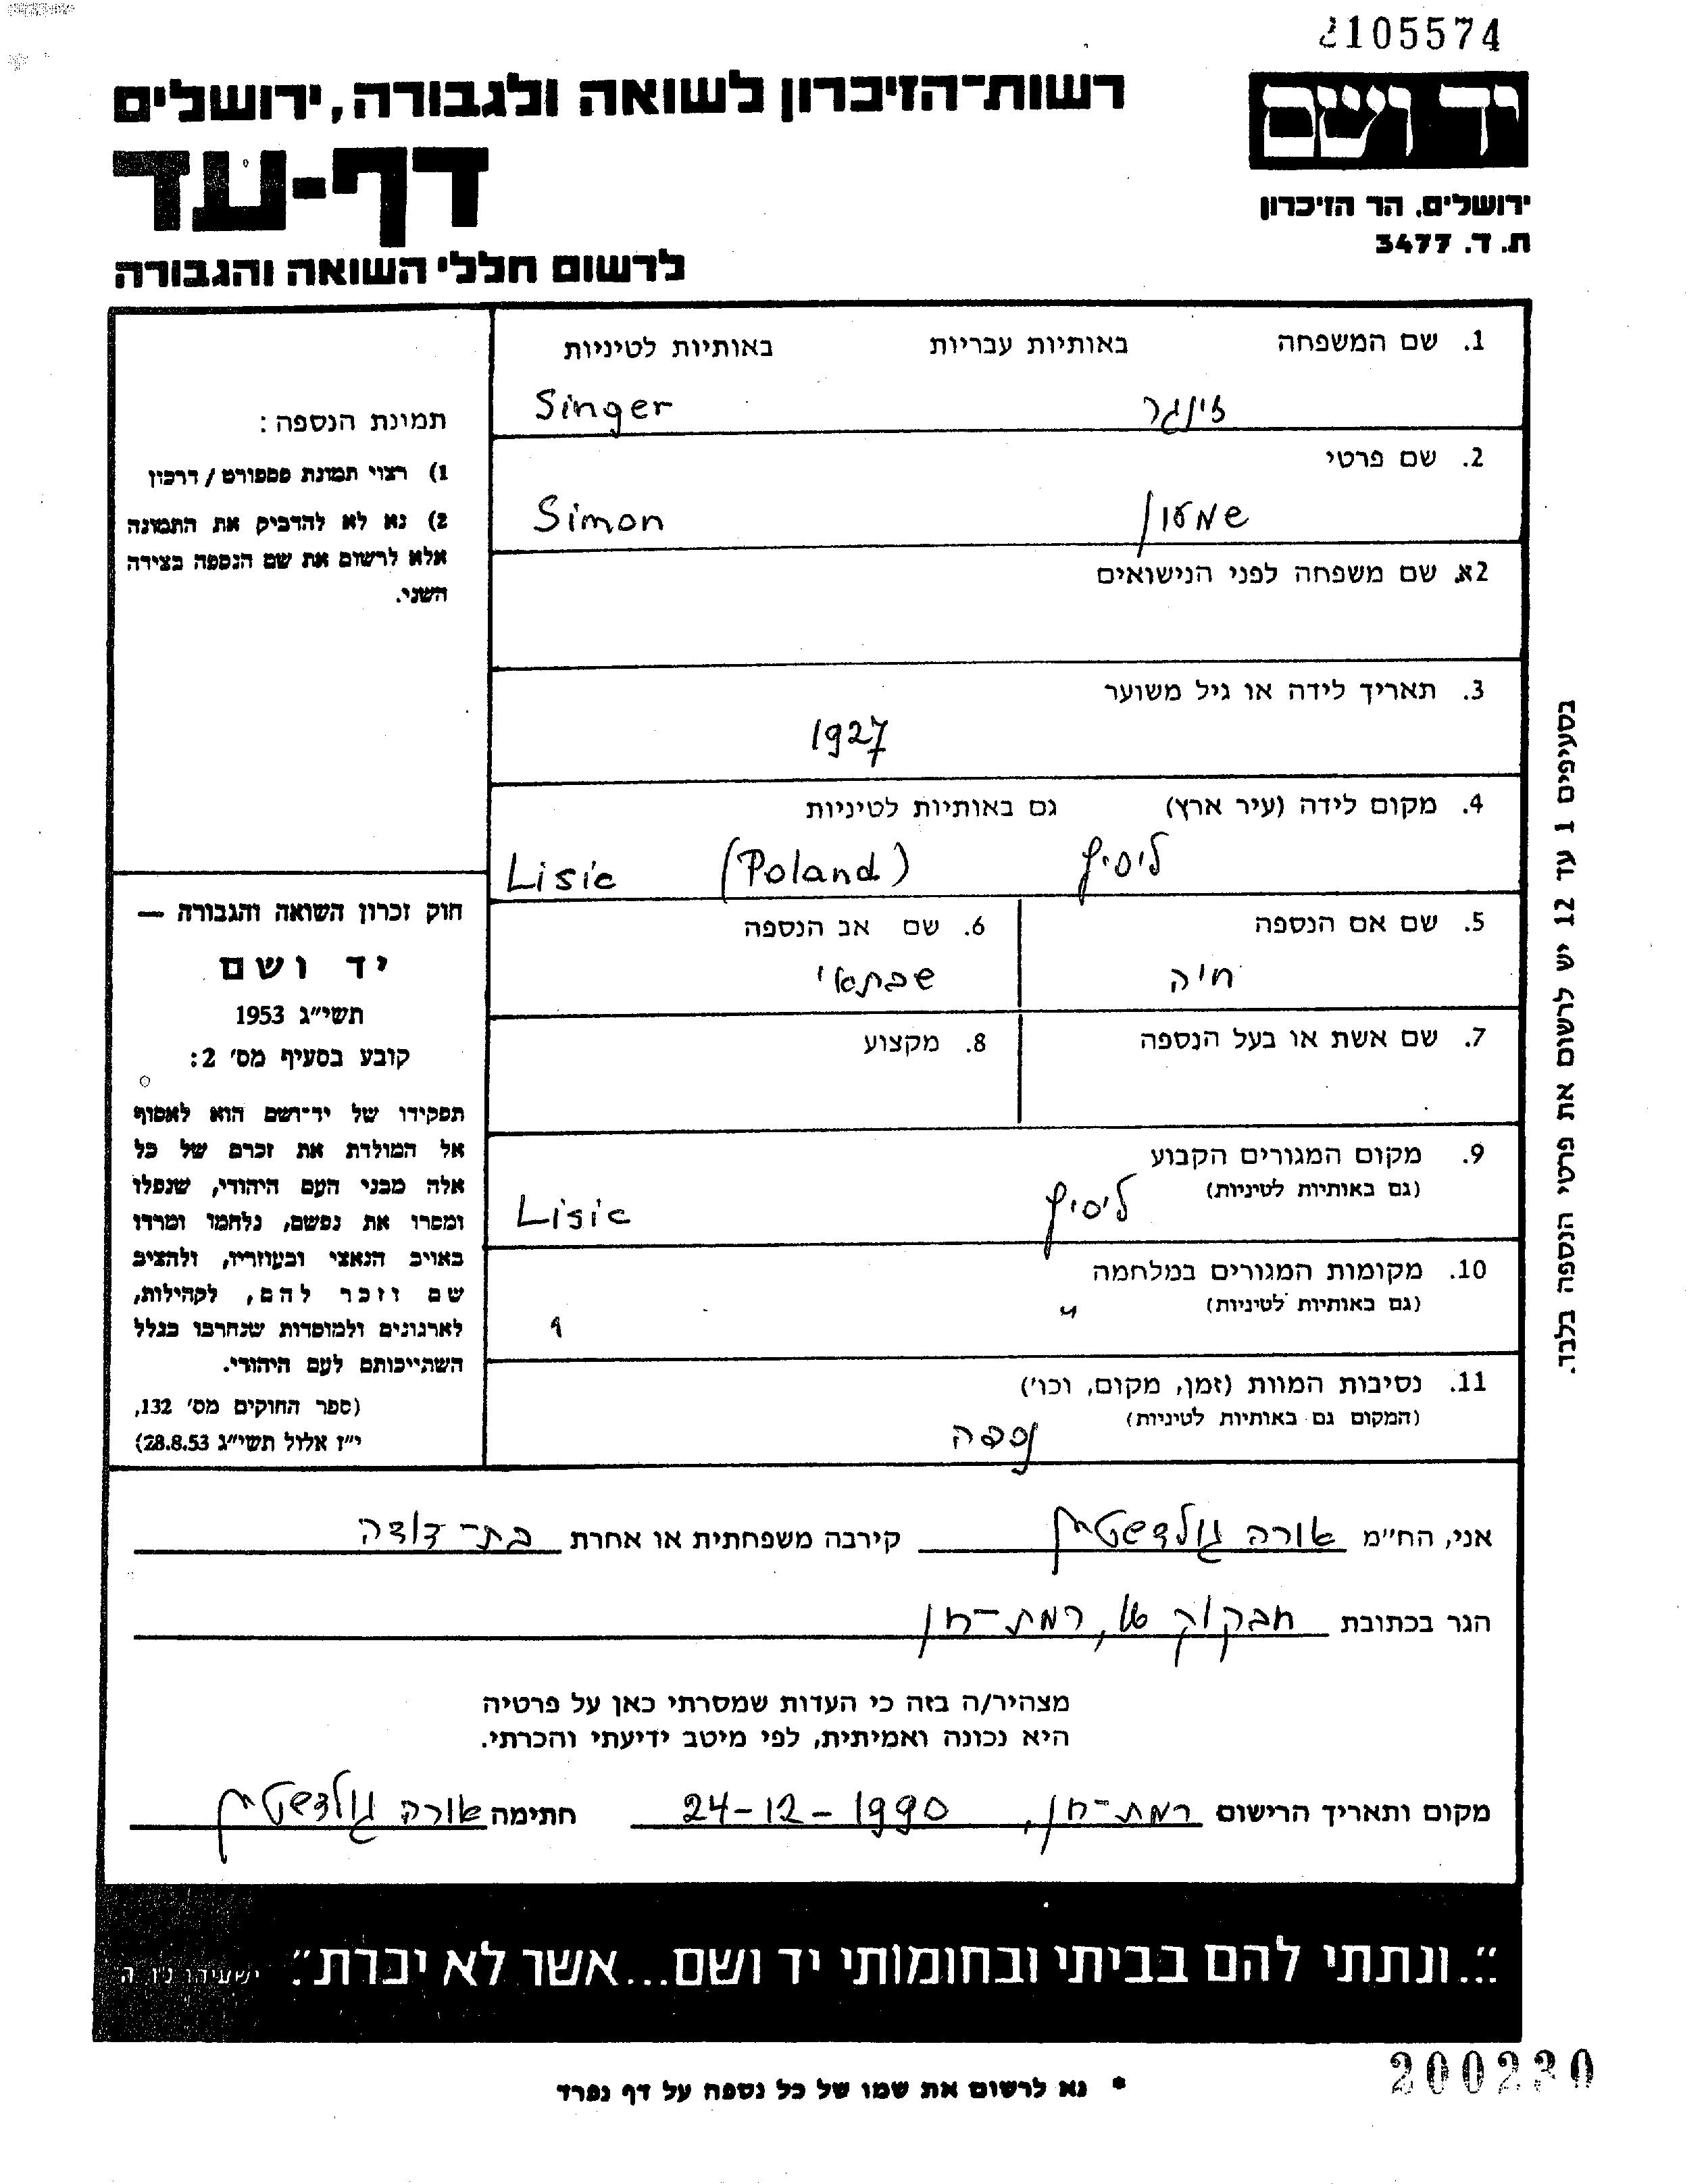 2105574
רשות־הזיכרון לשואה ולגבורה, ירושלים
יד ושם
דף-עד
ירושלים, הר הזיכרון
ת. ד. 3477
לרשום חללי השואה והגבורה
1. שם המשפחה באותיות עבריות באותיות לטיניות
זינגר Singer
2. שם פרטי
שמעון Simon
2א. שם משפחה לפני הנישואים
3. תאריך לידה או גיל משוער
1927
4. מקום לידה (עיר ארץ) גם באותיות לטיניות
ליסיץ (Poland) Lisic
5. שם אם הנספה 6. שם אב הנספה
חיה שבתאי
7. שם אשת או בעל הנספה 8. מקצוע
9. מקום המגורים הקבוע
(גם באותיות לטיניות)
ליסיץ Lisic
10. מקומות המגורים במלחמה
(גם באותיות לטיניות)
"
11. נסיבות המוות (זמן, מקום, וכו')
(המקום גם באותיות לטיניות)
נספה
תמונת הנספה:
1) רצוי תמונת פספורט / דרכון
2) נא לא להדביק את התמונה
אלא לרשום את שם הנספה בצידה
השני.
חוק זכרון השואה והגבורה —
יד ושם
תשי"ג 1953
קובע בסעיף מס' 2:
תפקידו של יד־ושם הוא לאסוף
אל המולדת את זכרם של כל
אלה מבני העם היהודי, שנפלו
ומסרו את נפשם, נלחמו ומרדו
באויב הנאצי ובעוזריו, ולהציב
שם וזכר להם, לקהילות,
לארגונים ולמוסדות שנחרבו בגלל
השתייכותם לעם היהודי.
(ספר החוקים מס' 132,
י"ז אלול תשי"ג 28.8.53)
בסעיפים 1 עד 12 יש לרשום את פרטי הנספה בלבד.
אני, הח"מ אורה גולדשטיין קירבה משפחתית או אחרת בת-דודה
הגר בכתובת חבקוק 16, רמת-חן
מצהיר/ה בזה כי העדות שמסרתי כאן על פרטיה
היא נכונה ואמיתית, לפי מיטב ידיעתי והכרתי.
מקום ותאריך הרישום רמת-חן, 24-12-1990 חתימה אורה גולדשטיין
"...ונתתי להם בביתי ובחומותי יד ושם...אשר לא יכרת". ישעיהו נו ה
* נא לרשום את שמו של כל נספה על דף נפרד
200230